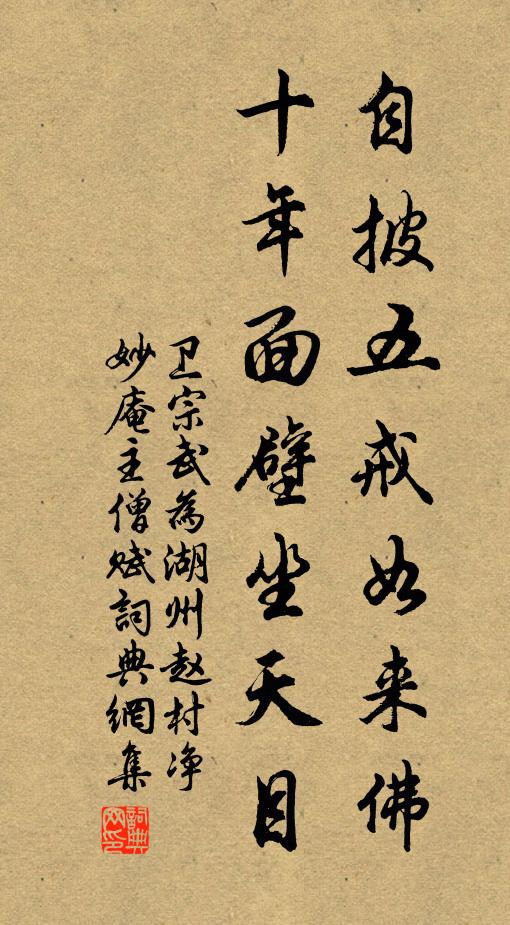 自披五戒如来佛
十年面壁坐天目
卫宗武為湖州赵村净
妙庵主僧赋詞典網集
詞典网印